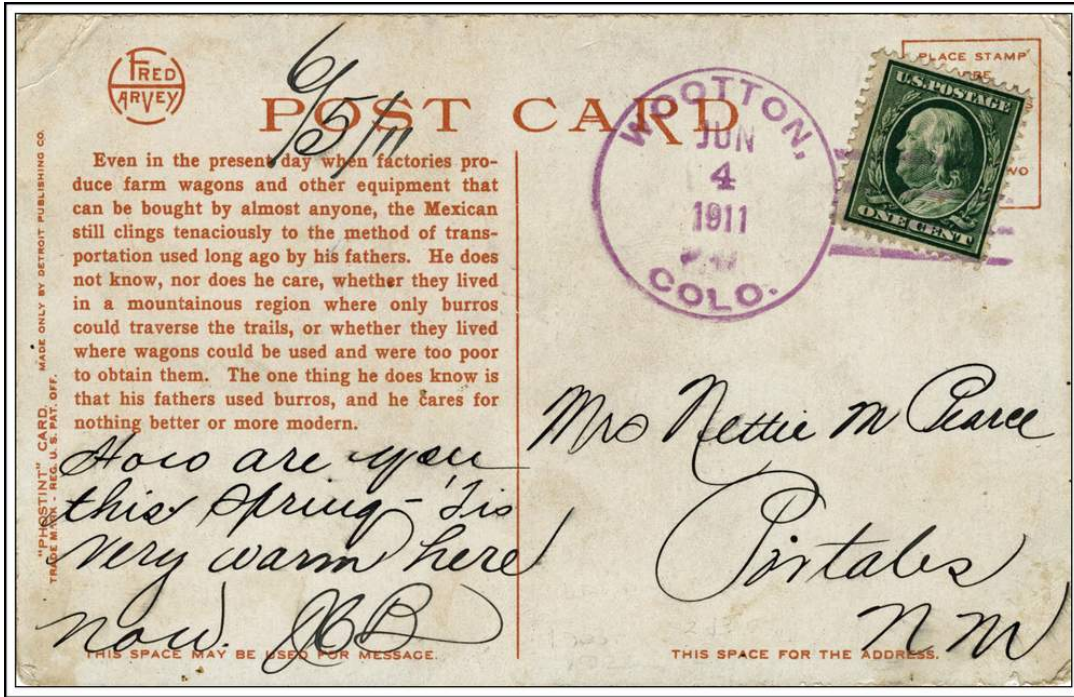 FRED
HARVEY
6/5/11
POST CARD
PLACE STAMP
"PHOSTINT" CARD. MADE ONLY BY DETROIT PUBLISHING CO.
TRADE MARK - REG. U. S. PAT. OFF.
Even in the present day when factories pro-
duce farm wagons and other equipment that
can be bought by almost anyone, the Mexican
still clings tenaciously to the method of trans-
portation used long ago by his fathers. He does
not know, nor does he care, whether they lived
in a mountainous region where only burros
could traverse the trails, or whether they lived
where wagons could be used and were too poor
to obtain them. The one thing he does know is
that his fathers used burros, and he cares for
nothing better or more modern.
How are you
this spring - 'Tis
very warm here
now.
THIS SPACE MAY BE USED FOR MESSAGE.
WOOTTON,
JUN
4
1911
COLO.
U.S. POSTAGE
ONE CENT
Mrs Nettie M Pearce
Portales
N M
THIS SPACE FOR THE ADDRESS.